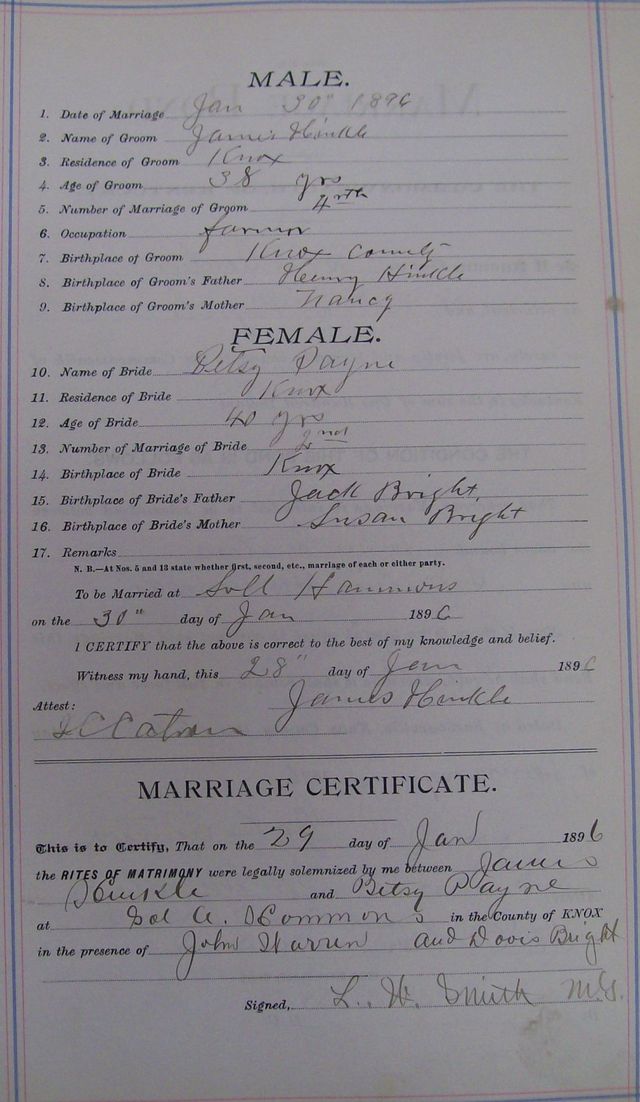 MALE.
1. Date of Marriage Jan 30 1896
2. Name of Groom James Hinkle
3. Residence of Groom Knox
4. Age of Groom 38 yrs
5. Number of Marriage of Groom 4rth
6. Occupation farmer
7. Birthplace of Groom Knox County
8. Birthplace of Groom's Father Henry Hinkle
9. Birthplace of Groom's Mother Nancy
FEMALE.
10. Name of Bride Betsy Payne
11. Residence of Bride Knox
12. Age of Bride 40 yrs
13. Number of Marriage of Bride 2nd
14. Birthplace of Bride Knox
15. Birthplace of Bride's Father Jack Bright,
16. Birthplace of Bride's Mother Susan Bright
17. Remarks
N. B.—At Nos. 5 and 13 state whether first, second, etc., marriage of each or either party.
To be Married at Soll Hammons
on the 30" day of Jan 1896
I CERTIFY that the above is correct to the best of my knowledge and belief.
Witness my hand, this 28" day of Jan 1896
James Hinkle
Attest:
Catron
MARRIAGE CERTIFICATE.
This is to Certify, That on the 29 day of Jan 1896
the RITES OF MATRIMONY were legally solemnized by me between James
Hinkle and Betsy Payne
at Sol A. Hammons in the County of KNOX
in the presence of John Warren and Dovis Bright
Signed, L. W. Smith M.G.